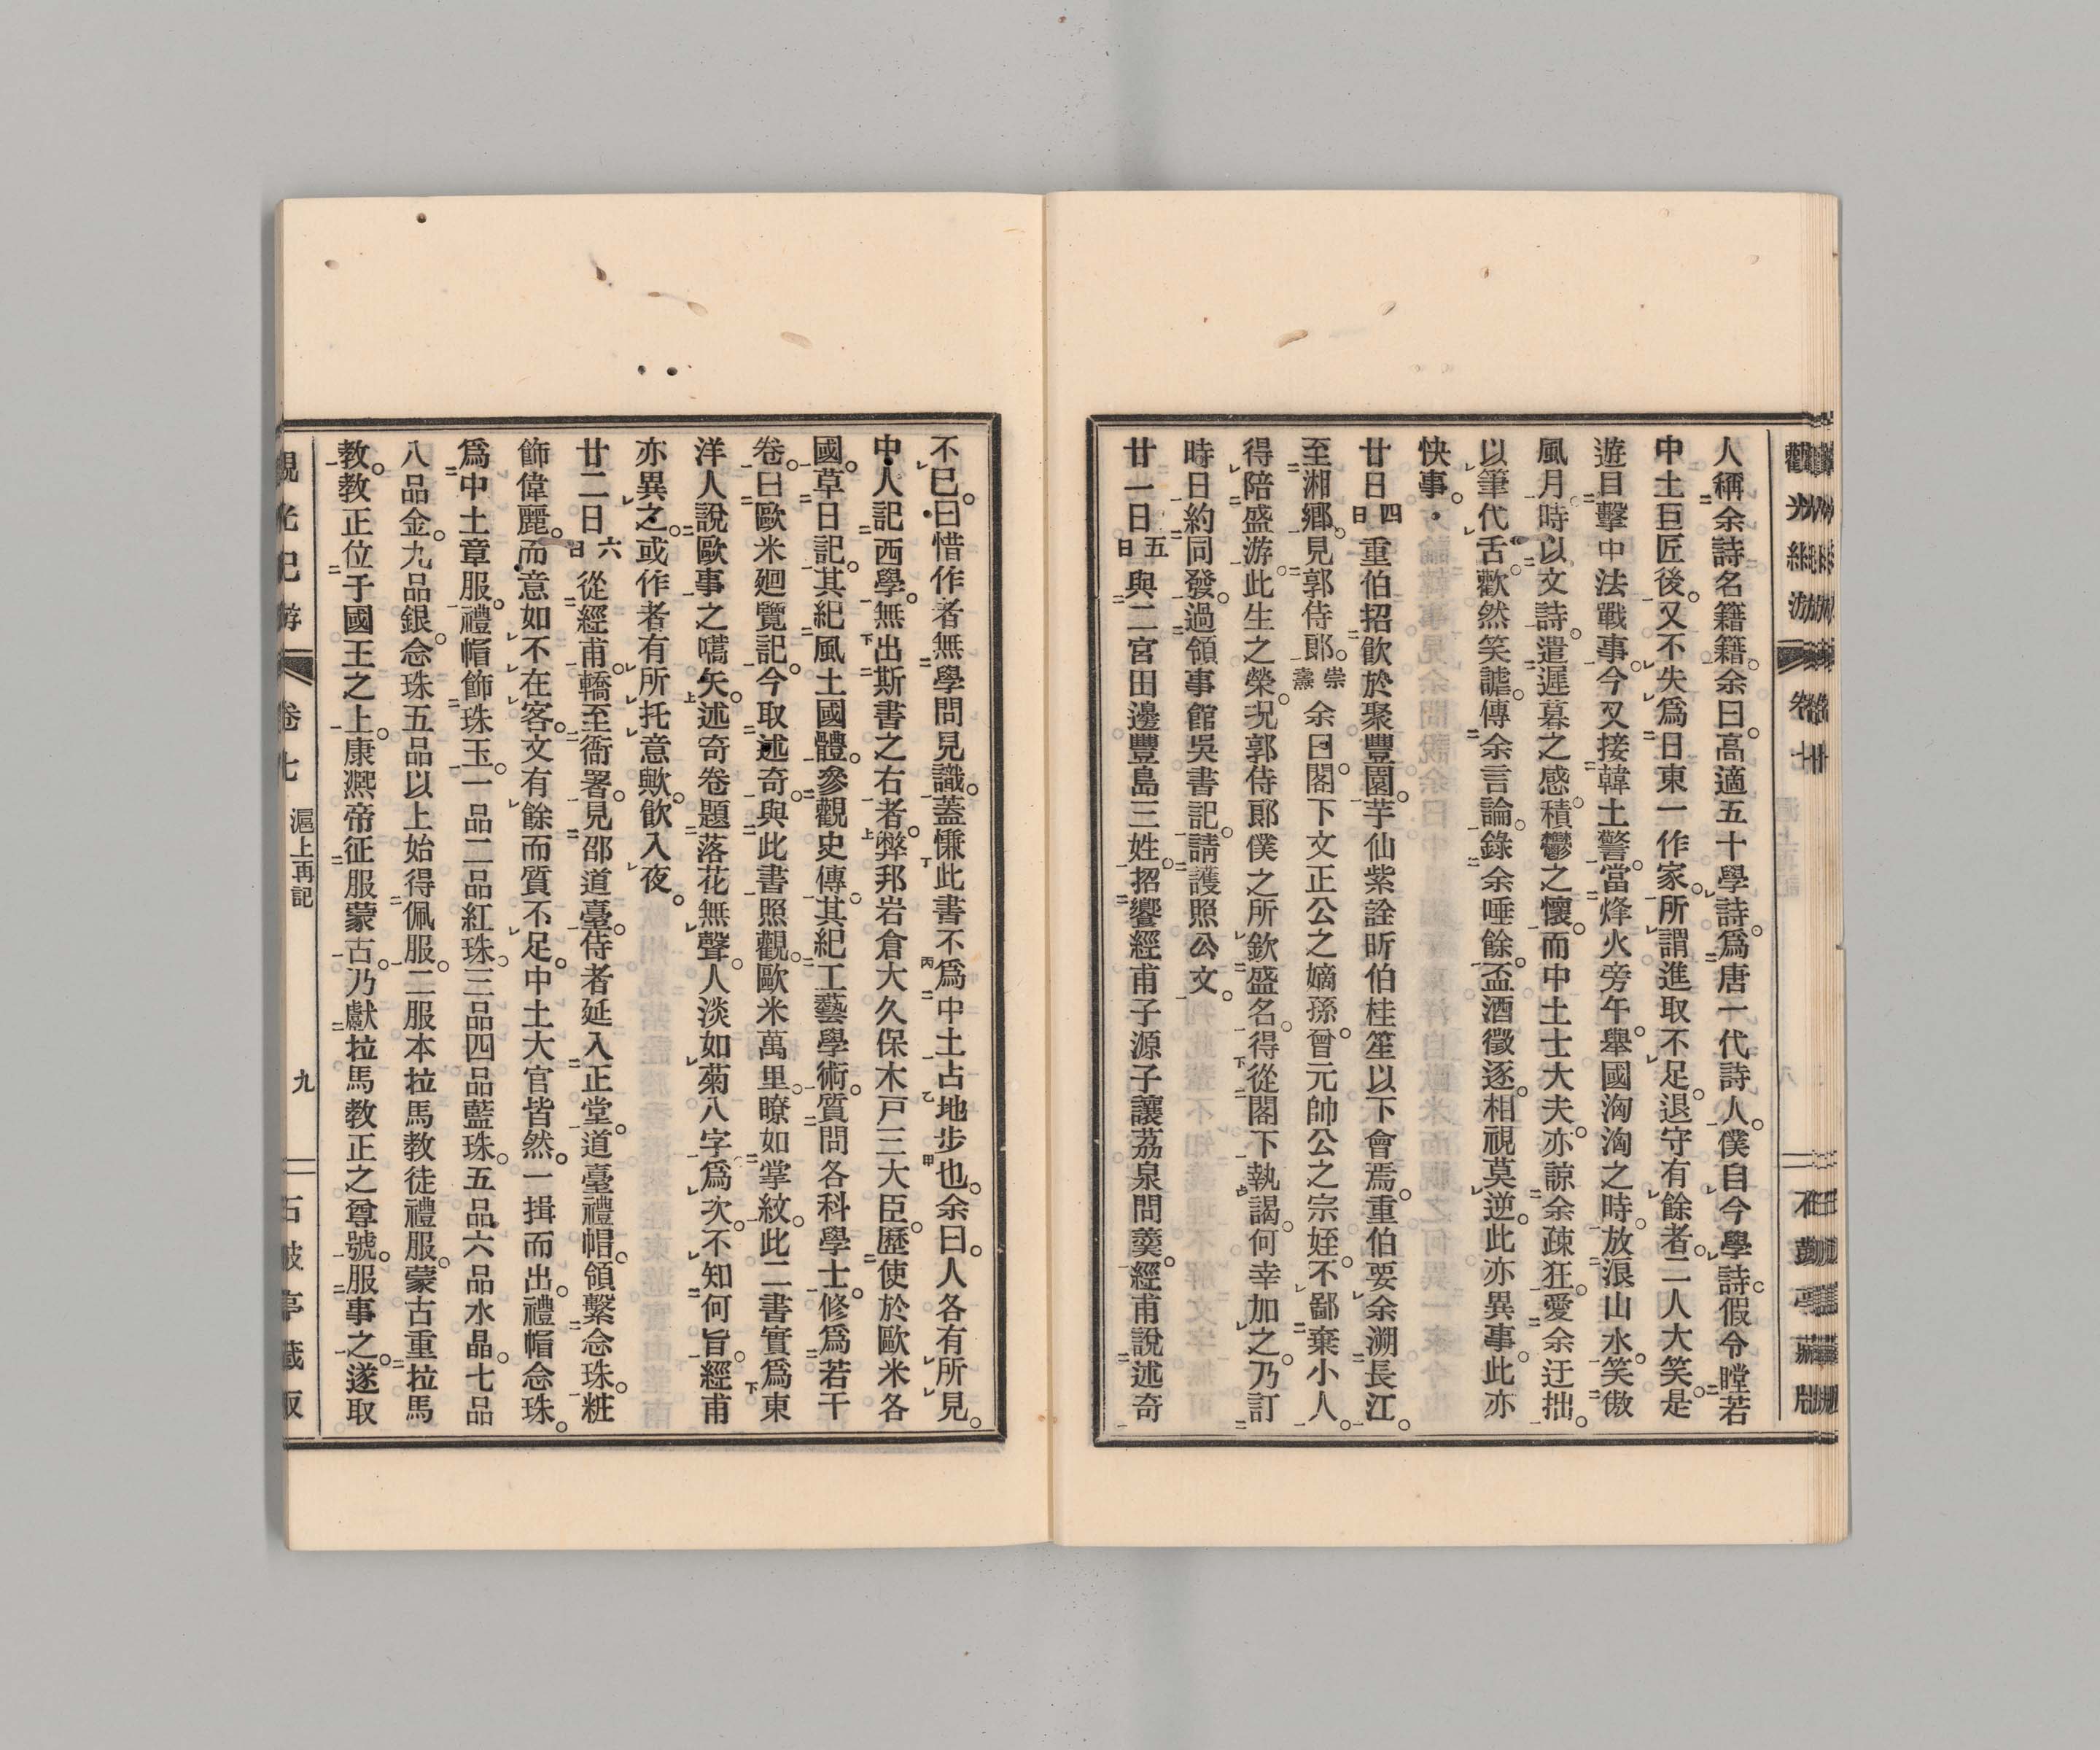 人稱余詩名籍籍。余曰。高適五十學詩。爲唐一代詩人。僕自今學詩。假令瞠若
中土巨匠後。又不失爲日東一作家。所謂進取不足。退守有餘者。二人大笑。是
遊日擊中法戰事。今又接韓土警。當烽火旁午。舉國洶洶之時。放浪山水。笑傲
風月。時以文詩。遣遲暮之感。積鬱之懷。而中土士大夫。亦諒余疎狂。愛余迂拙。
以筆代舌。歡然笑謔。傳余言論。錄余唾餘。盃酒徵逐。相視莫逆。此亦異事。此亦
快事。
廿日四日重伯招飮於聚豐園。芋仙紫詮昕伯桂笙以下會焉。重伯要余溯長江。
至湘鄉。見郭侍郎。崇燾余曰。閣下文正公之嫡孫。曾元帥公之宗姪。不鄙棄小人。
得陪盛游。此生之榮。況郭侍郎僕之所欽盛名。得從閣下執謁。何幸加之。乃訂
時日約同發。過領事館吳書記。請護照公文。
廿一日五日與二宮田邊豐島三姓。招饗經甫子源子讓茘泉問羹。經甫說述奇
不已。曰惜作者無學問見識。蓋慊此書不爲中土占地步也。余曰。人各有所見。
中人記西學。無出斯書之右者。弊邦岩倉大久保木戸三大臣。歷使於歐米各
國。草日記。其紀風土國體。參觀史傳。其紀工藝學術。質問各科學士。修爲若干
卷。曰歐米廻覽記。今取述奇。與此書照觀。歐米萬里。瞭如掌紋。此二書實爲東
洋人說歐事之嚆矢。述奇卷題落花無聲。人淡如菊八字爲次。不知何旨。經甫
亦異之。或作者有所托意歟。飮入夜。
廿二日六日從經甫。轎至衙署。見邵道臺。侍者延入正堂。道臺禮帽。領繫念珠。粧
飾偉麗。而意如不在客。文有餘而質不足。中土大官皆然。一揖而出。禮帽念珠。
爲中土章服。禮帽飾珠玉。一品二品紅珠。三品四品藍珠。五品六品水晶。七品
八品金。九品銀。念珠五品以上始得佩服。二服本拉馬教徒禮服。蒙古重拉馬
教。教正位于國王之上。康熙帝征服蒙古。乃獻拉馬教正之尊號。服事之。遂取
觀光紀游
卷七
滬上再記
九
石鼓亭藏版